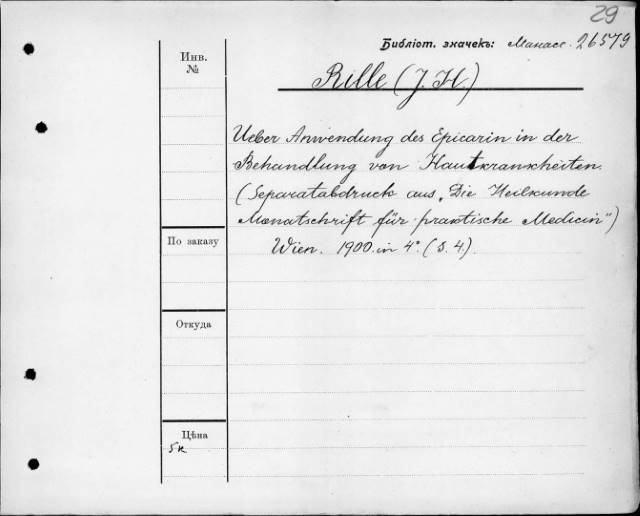 29
Библіот. значекъ: Манасс. 26579
Инв.
№
Rille (J. H.)
Ueber Anwendung des Epicarin in der
Behandlung von Hautkrankheiten.
(Separatabdruck aus „Die Heilkunde
Monatschrift für praktische Medicin")
Wien. 1900. in 4° (S. 4).
По заказу
Откуда
Цѣна
5к